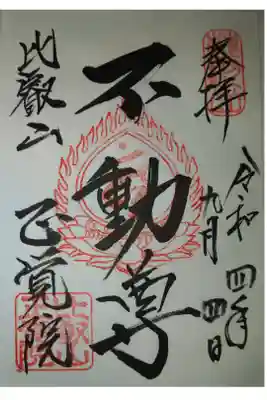 奉拝
令和四年
九月四日
不動尊
比叡山
正覚院